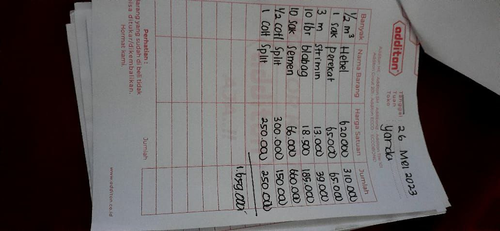 additon
Tanggal : 26 Mei 2023
Tuan
Toko
Yanda
Banyak Nama Barang Harga Satuan Jumlah
1/2 m³ Hebel 620.000 310.000
1 sak Perekat 65.000 65.000
3 m strimin 13.000 39.000
10 lbr blabag 18.500 185.000
10 sak semen 66.000 660.000
1/2 colt split 300.000 150.000
1 Colt Split 250.000 250.000
1.659.000
Jumlah
Perhatian :
Barang yang sudah di beli tidak
bisa ditukar/dikembalikan.
Hormat kami,
www.additon.co.id